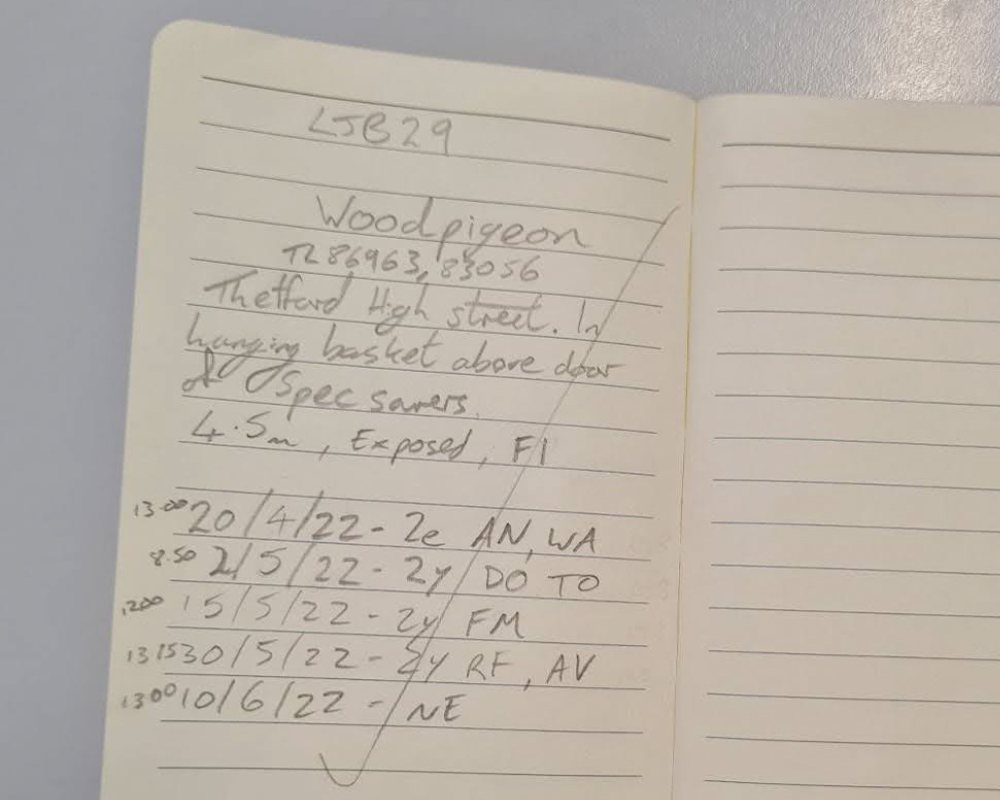 LJB29
Woodpigeon
TL 86963, 83056
Thetford High street. In
hanging basket above door
of Specsavers.
4.5m, Exposed, F1
13.00 20/4/22 - 2e AN, WA
8.50 2/5/22 - 2y DO TO
1200 15/5/22 - 2y FM
1315 30/5/22 - 2y RF, AV
1300 10/6/22 - NE